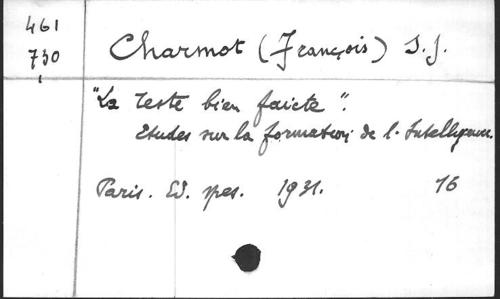 461
730
Charmot (François) S.J.
"La teste bien faicte".
Etudes sur la formation de l'Intelligence.
Paris. Ed. spes. 1931. 16